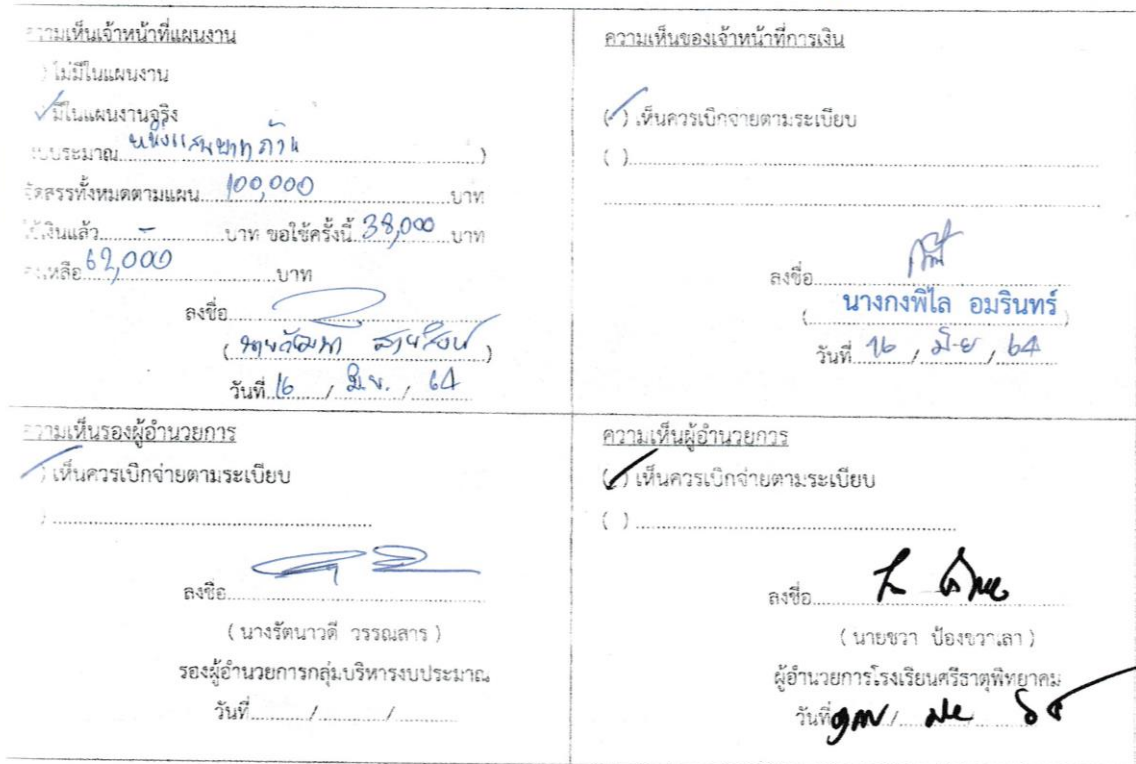 ความเห็นเจ้าหน้าที่แผนงาน
) ไม่มีในแผนงาน
✓ มีในแผนงานจริง
งบประมาณ หนึ่งแสนบาทถ้วน )
จัดสรรทั้งหมดตามแผน 100,000 บาท
ใช้เงินแล้ว - บาท ขอใช้ครั้งนี้ 38,000 บาท
คงเหลือ 62,000 บาท
ลงชื่อ
(
)
วันที่ 16 / มิ.ย. / 64
ความเห็นของเจ้าหน้าที่การเงิน
(✓) เห็นควรเบิกจ่ายตามระเบียบ
( )
ลงชื่อ
( นางกงพิไล อมรินทร์ )
วันที่ 16 / มิ.ย / 64
ความเห็นรองผู้อำนวยการ
✓) เห็นควรเบิกจ่ายตามระเบียบ
)
ลงชื่อ
( นางรัตนาวดี วรรณสาร )
รองผู้อำนวยการกลุ่มบริหารงบประมาณ
วันที่ / /
ความเห็นผู้อำนวยการ
(✓) เห็นควรเบิกจ่ายตามระเบียบ
( )
ลงชื่อ
( นายชวา ป้องขวาเลา )
ผู้อำนวยการโรงเรียนศรีธาตุพิทยาคม
วันที่